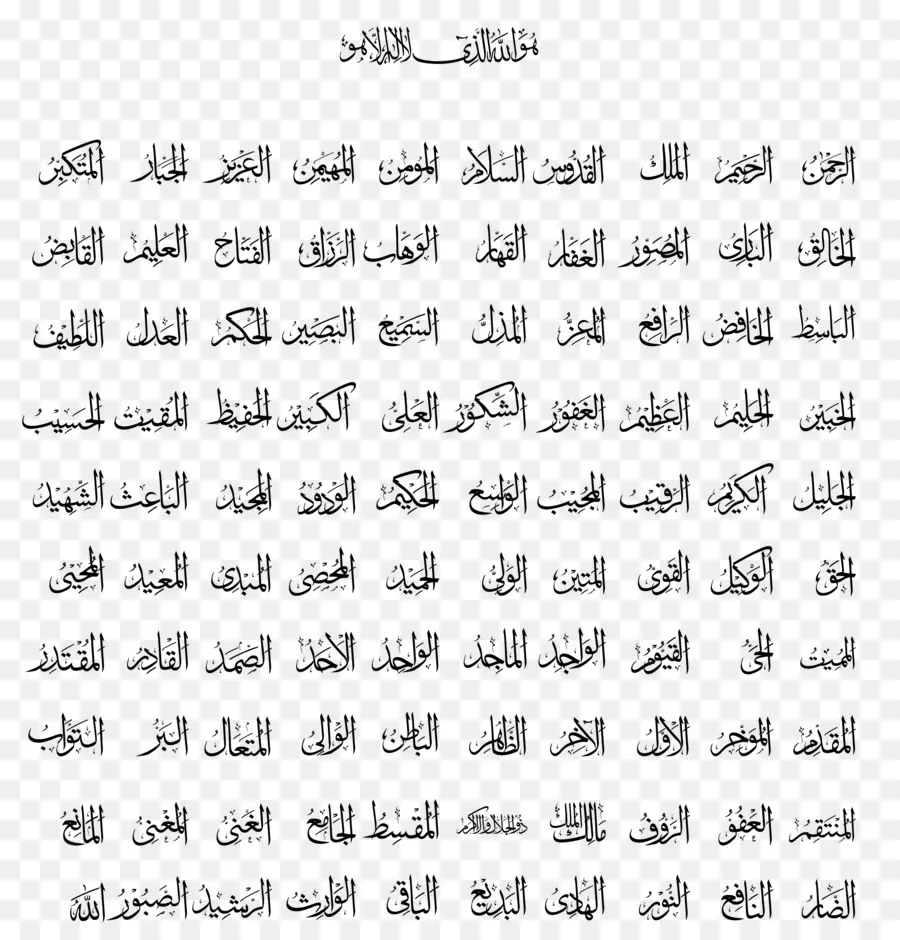 هُوَ اللهُ الَّذِي لَا إِلٰهَ إِلَّا هُوَ
الرَّحْمٰنُ الرَّحِيْمُ المَلِكُ القُدُّوْسُ السَّلَامُ المُؤْمِنُ المُهَيْمِنُ العَزِيْزُ الجَبَّارُ المُتَكَبِّرُ
الخَالِقُ البَارِئُ المُصَوِّرُ الغَفَّارُ القَهَّارُ الوَهَّابُ الرَّزَّاقُ الفَتَّاحُ العَلِيْمُ القَابِضُ
البَاسِطُ الخَافِضُ الرَّافِعُ المُعِزُّ المُذِلُّ السَّمِيْعُ البَصِيْرُ الحَكَمُ العَدْلُ اللَّطِيْفُ
الخَبِيْرُ الحَلِيْمُ العَظِيْمُ الغَفُوْرُ الشَّكُوْرُ العَلِيُّ الكَبِيْرُ الحَفِيْظُ المُقِيْتُ الحَسِيْبُ
الجَلِيْلُ الكَرِيْمُ الرَّقِيْبُ المُجِيْبُ الوَاسِعُ الحَكِيْمُ الوَدُوْدُ المَجِيْدُ البَاعِثُ الشَّهِيْدُ
الحَقُّ الوَكِيْلُ القَوِيُّ المَتِيْنُ الوَلِيُّ الحَمِيْدُ المُحْصِي المُبْدِئُ المُعِيْدُ المُحْيِي
المُمِيْتُ الحَيُّ القَيُّوْمُ الوَاجِدُ المَاجِدُ الوَاحِدُ الأَحَدُ الصَّمَدُ القَادِرُ المُقْتَدِرُ
المُقَدِّمُ المُؤَخِّرُ الأَوَّلُ الآخِرُ الظَّاهِرُ البَاطِنُ الوَالِي المُتَعَالُ البَرُّ التَّوَّابُ
المُنْتَقِمُ العَفُوُّ الرَّؤُوْفُ مَالِكُ المُلْكِ ذُو الجَلَالِ وَالإِكْرَامِ المُقْسِطُ الجَامِعُ الغَنِيُّ المُغْنِي المَانِعُ
الضَّارُّ النَّافِعُ النُّوْرُ الهَادِي البَدِيْعُ البَاقِي الوَارِثُ الرَّشِيْدُ الصَّبُوْرُ اللهُ